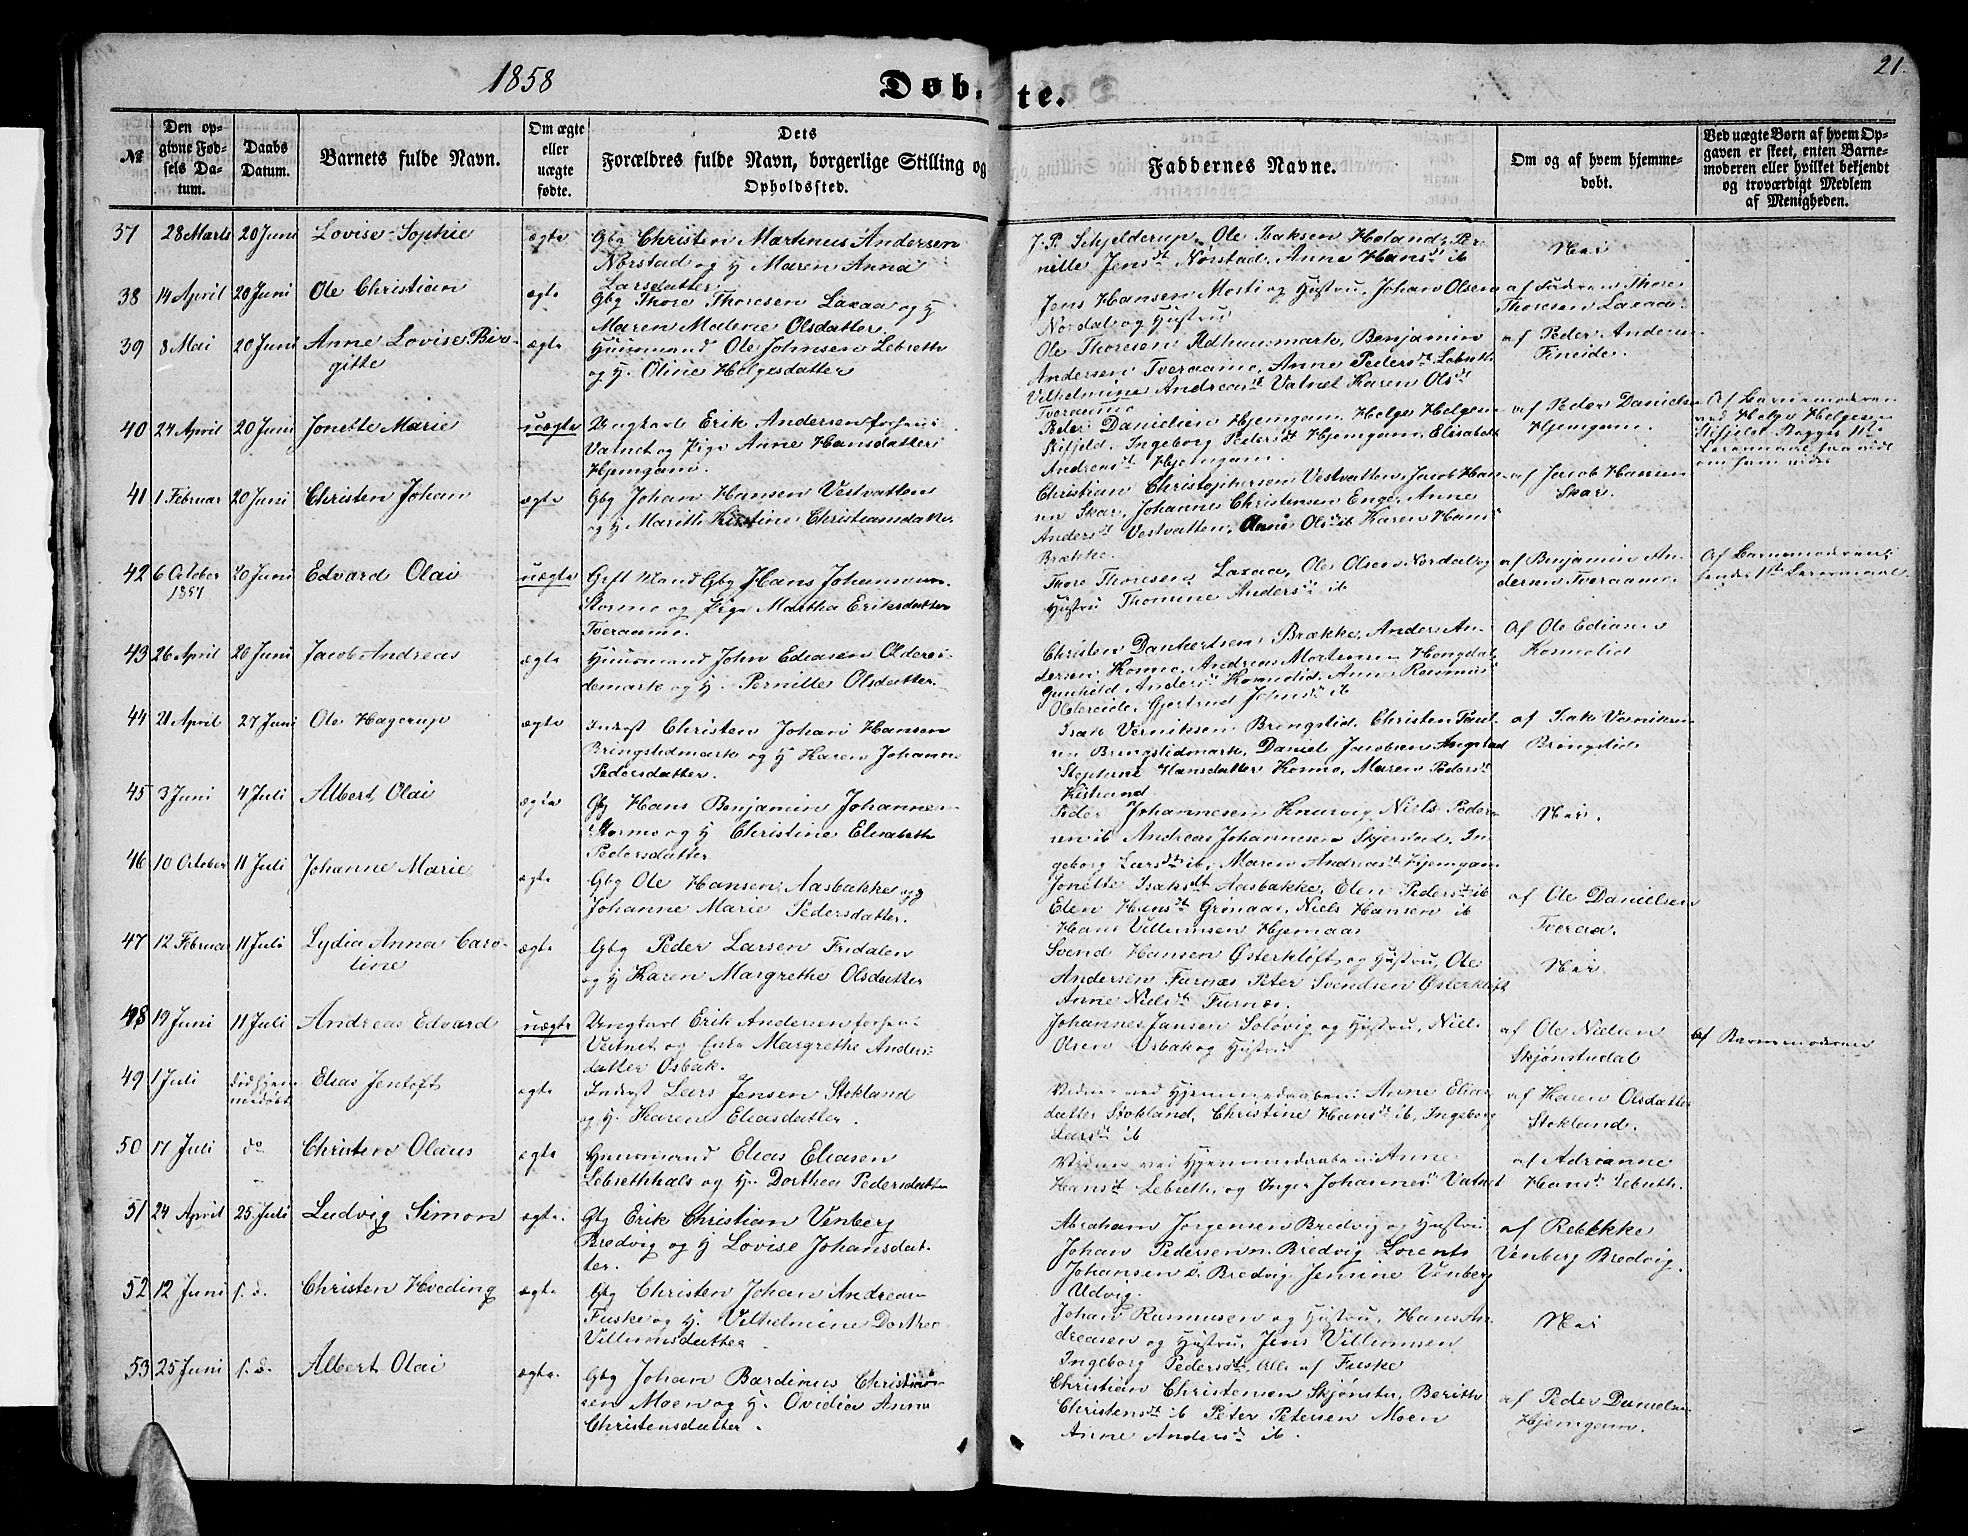 1858
Døb-
te.
21.
№
Den op-
givne Fød-
sels Da-
tum.
Daabs
Datum.
Barnets fulde Navn.
Om ægte
eller
uægte
fødte.
Dets
Forældres fulde Navn, borgerlige Stilling og
Opholdssted.
Faddernes Navne.
Om og af hvem hjemme-
døbt.
Ved uægte Børn af hvem Op-
gaven er skeet, enten Barne-
moderen eller hvilket bekjendt
og troværdigt Medlem
af Menigheden.
37 28 Marts 20 Juni Lovise Sophie ægte Gbg Christen Martinus Andersen
Nørstad og H Maren Anna
Larsdatter
J. P. Schjelderup, Ole Isaksen Holand, Per-
nille Jensdt Nørstad, Anne Hansdt ib
Nei
38 14 April 20 Juni Ole Christian ægte Gbg Thore Thoresen Laxaa og H
Maren Malene Olsdatter
Jens Hansen Mosti og Hustru, Johan Olsen
Nordal og Hustru
af Fadren Thore
Thoresen Laxaa
39 8 Mai 20 Juni Anne Lovise Bir-
gitte
ægte Huusmand Ole Johnsen Lebreth
og H. Oline Helgesdatter
Ole Thoresen Benjamin
Andersen Tveraamo, Anne Pedersdt Lebreth
Vilhelmine Andreasdt Vatnet Karen Olsdt
Tveraamo
af Peder Anderse
Fineide.
40 24 April 20 Juni Jonette Marie uægte Ungkarl Erik Andersen forhen i
Vatnet og Pige Anne Hansdatter
Hjemgam.
Peder Danielsen Hjemgam, Helge Helgesen
Stifjeld, Ingeborg Pedersdt Hjemgam, Elisabeth
Andreasdt Hjemgam
af Peder Danielsen
Hjemgam.
Af Barnemoderen
ved Helge Helgesen
Stifjeld
41 1 Februar 20 Juni Christen Johan ægte Gbg Johan Hansen Vestvatten
og H Marith Kirstine Christiansdatter
Christian Christophersen Vestvatten, Jacob Han-
sen Skar, Johannes Christensen Enge, Anne
Andersdt Vestvatten, Anne Olsdt ib Karen Hans
Brække.
af Jacob Hansen
Skar.
42 6 October
1857
20 Juni Edvard Olai uægte Gift Mand Gbg Hans Johannesen
Stormo og Pige Martha Eriksdatter
Tveraamo.
Thore Thoresen Laxaa, Ole Olsen Nordal og
Hustru Thomine Andersdt ib
af Benjamin An-
dersen Tveraamo.
Af Barnemoderen
43 26 April 20 Juni Jacob Andreas ægte Huusmand John Ediasen Olderei-
demark og H. Pernille Olsdatter
Christen Dankertsen Brække, Anders An-
dersen Kosmo, Andreas Mortensen Hongdal,
Gunhild Andersdt Kosmolid, Anne Rasmus
Oldereide, Gjertrud Johnsdt ib
Af Ole Ediasen
Kosmolid
44 21 April 27 Juni Ole Hagerup ægte Inderst Christen Johan Hansen
Bringslidmark og H Karen Johanne
Pedersdatter.
Isak Verniksen Bringslid, Christen Paul-
sen Bringslidmark, Daniel Jacobsen Angstad
Stephene Hansdatter Kosmo, Maren Pedersdt
Kistrand
af Isak Verniksen
Bringslid
45 3 Juni 4 Juli Albert Olai ægte Gbg Hans Benjamin Johannes-
Stormo og H Christine Elisabeth
Pedersdatter
Peder Johannesen Knurvig, Niels Peder-
sen ib Andreas Johannesen Skjerstad, In-
geborg Larsdt ib, Maren Andreasdt Hjemgam
Nei.
46 10 October 11 Juli Johanne Marie ægte Gbg Ole Hansen Aasbakke og H
Johanne Marie Pedersdatter.
Jonette Isaksdt Aasbakke, Elen Pedersdt ib
Elen Hansdt Grønaas, Niels Hansen ib
Hans Villumsen Hjemaas
af Ole Danielsen
Tveraa.
47 12 Februar 11 Juli Lydia Anna Caro-
line
ægte Gbg Peder Larsen Fridalen
og H Karen Margrethe Olsdatter
Svend Hansen Østerkløft og Hustru, Ole
Andersen Furnæs Peter Svendsen Østerkløft
Anne Nielsdt Furnæs.
Nei
48 19 Juni 11 Juli Andreas Edvard uægte Ungkarl Erik Andersen forhen i
Vatnet og Enke Margrethe Anders-
datter Osbak.
Johannes Jansen Soløvig og Hustru, Niels
Olsen Osbak og Hustru
af Ole Nielsen
Skjønstudal
af Barnemoderen
49 1 Juli Elias Jentoft ægte Inderst Lars Jensen Stokland
og H. Karen Eliasdatter.
Vidner ved Hjemmedaaben: Anne Elias-
datter Stokland, Christine Hansdt ib, Ingeborg
Larsdt ib
af Karen Olsdatter
Stokland.
50 17 Juli do Christen Olaus ægte Huusmand Elias Eliasen
Lebrethhals og H. Dorthea Pedersdatter
Vidner ved Hjemmedaaben: Anne
Hansdt Lebreth, og Inger Johannesdt Vatnet
af Adrianne
Hansdt Lebreth.
51 24 April 25 Juli Ludvig Simon ægte. Gbg Erik Christian Venberg
Bredvig og H Lovise Johansdat-
ter.
Abraham Jørgensen Bredvig og Hustru
Johan Pedersen Bredvig Lorents
Johansen Bredvig, Jemine Venberg
Udvig.
af Rebekke
Venberg Bredvig.
52 12 Juni s. d. Christen Hveding ægte Gbg Christen Johan Andreas-
Fuske og H. Vilhelmine Dorthea
Villumsdatter
Johan Rasmusen og Hustru, Hans An-
dreasen og Hustru, Jens Villumsen
Ingeborg Pedersdt, Alle af Fuske
Nei
53 25 Juni s. d. Albert Olai ægte. Gbg Johan Bardinus Christian-
sen Moen og H. Ovidia Anne
Christensdatter.
Christian Christensen Skjønstu, Berith
Christensdt ib Peter Petersen Moen
Anne Andersdt ib.
af Peder Danielsen
Hjemgam.